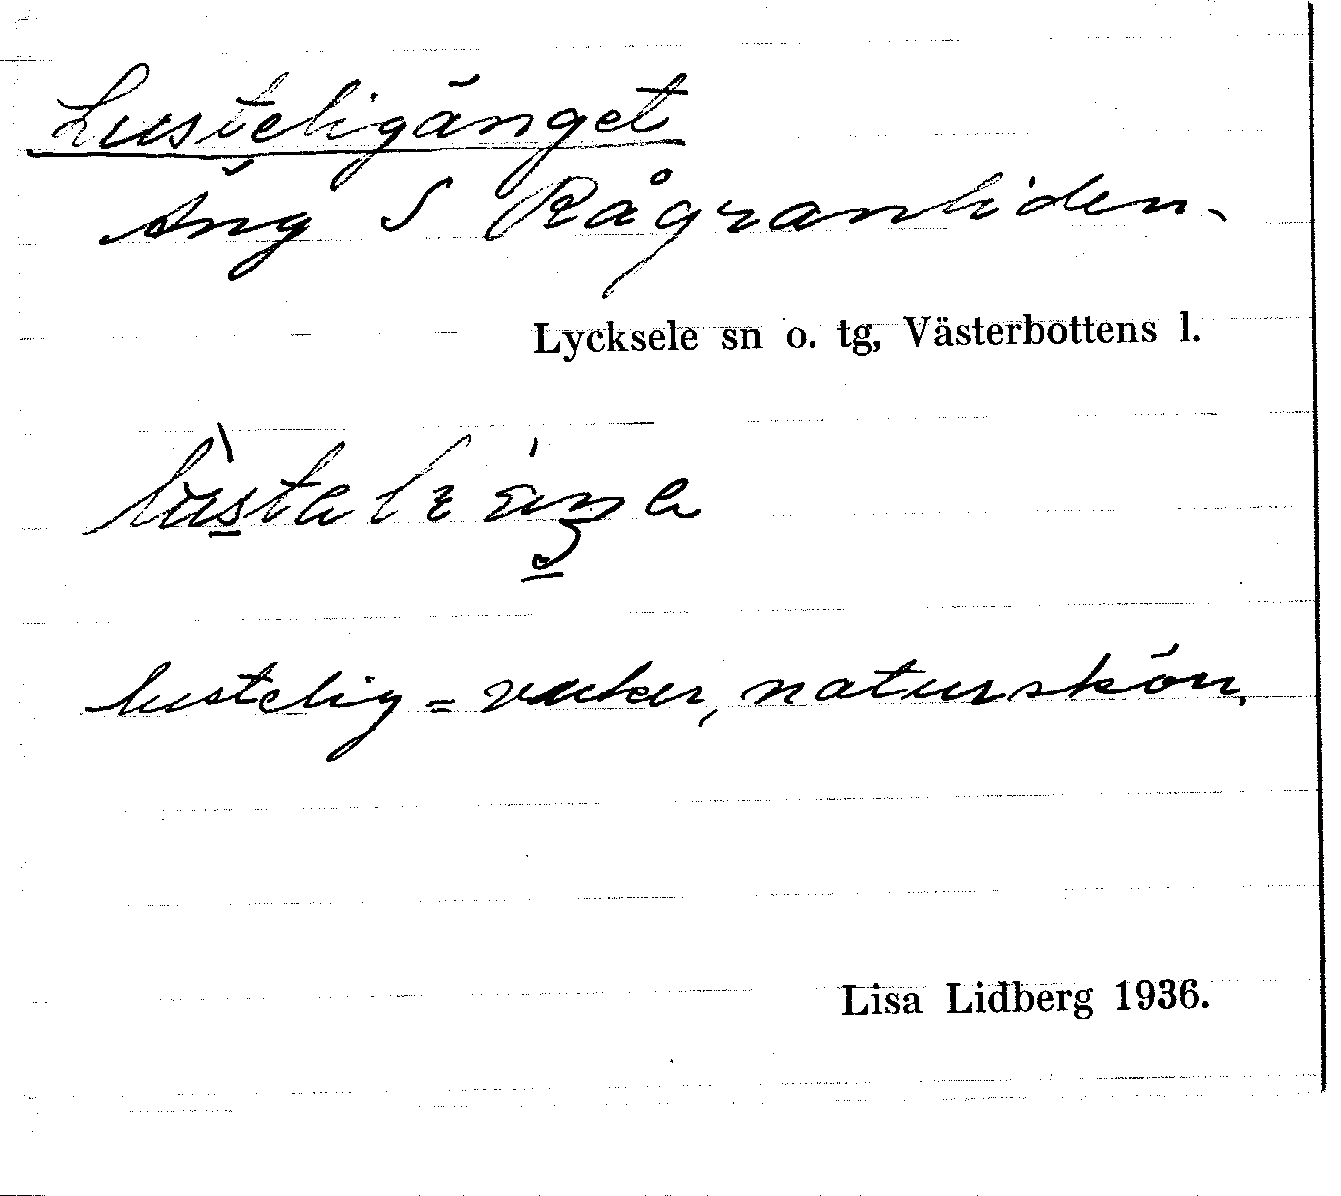 Lusteligänget
Äng S Rågranliden.
Lycksele sn o. tg, Västerbottens l.
lustelig = vacker, naturskön.
Lisa Lidberg 1936.